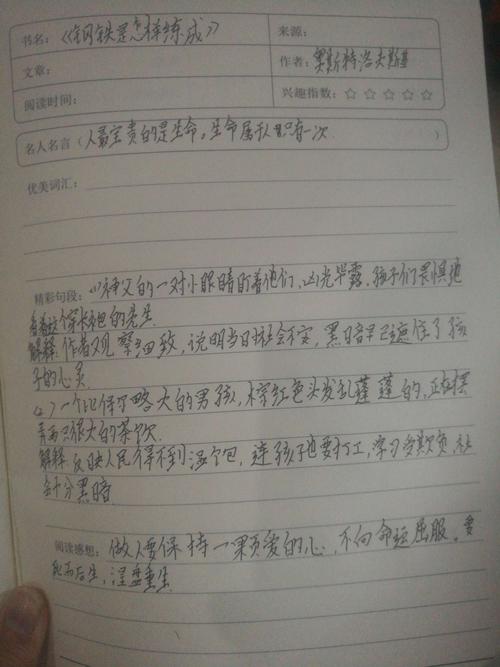 书名：《钢铁是怎样练成》
来源：
文章：
作者：奥斯特洛夫斯基
阅读时间：
兴趣指数：☆ ☆ ☆ ☆ ☆
名人名言（人最宝贵的是生命。生命属于人只有一次 ）
优美词汇：
精彩句段：(1)神父的一对小眼睛盯着他们，凶光毕露，孩子们畏惧地
看着这个穿长袍的先生
解释：作者观察细致，说明当日社会不安，黑暗早已遮住了孩
子的心灵
(2)一个比保尔略大的男孩，棕红色头发乱蓬蓬的，正在摆
弄两只很大的茶炊
解释：反映人民得不到温饱，连孩子也要打工，
会十分黑暗
阅读感想：做人要保持一颗爱的心，不向命运屈服。要
死而后生，涅盘重生